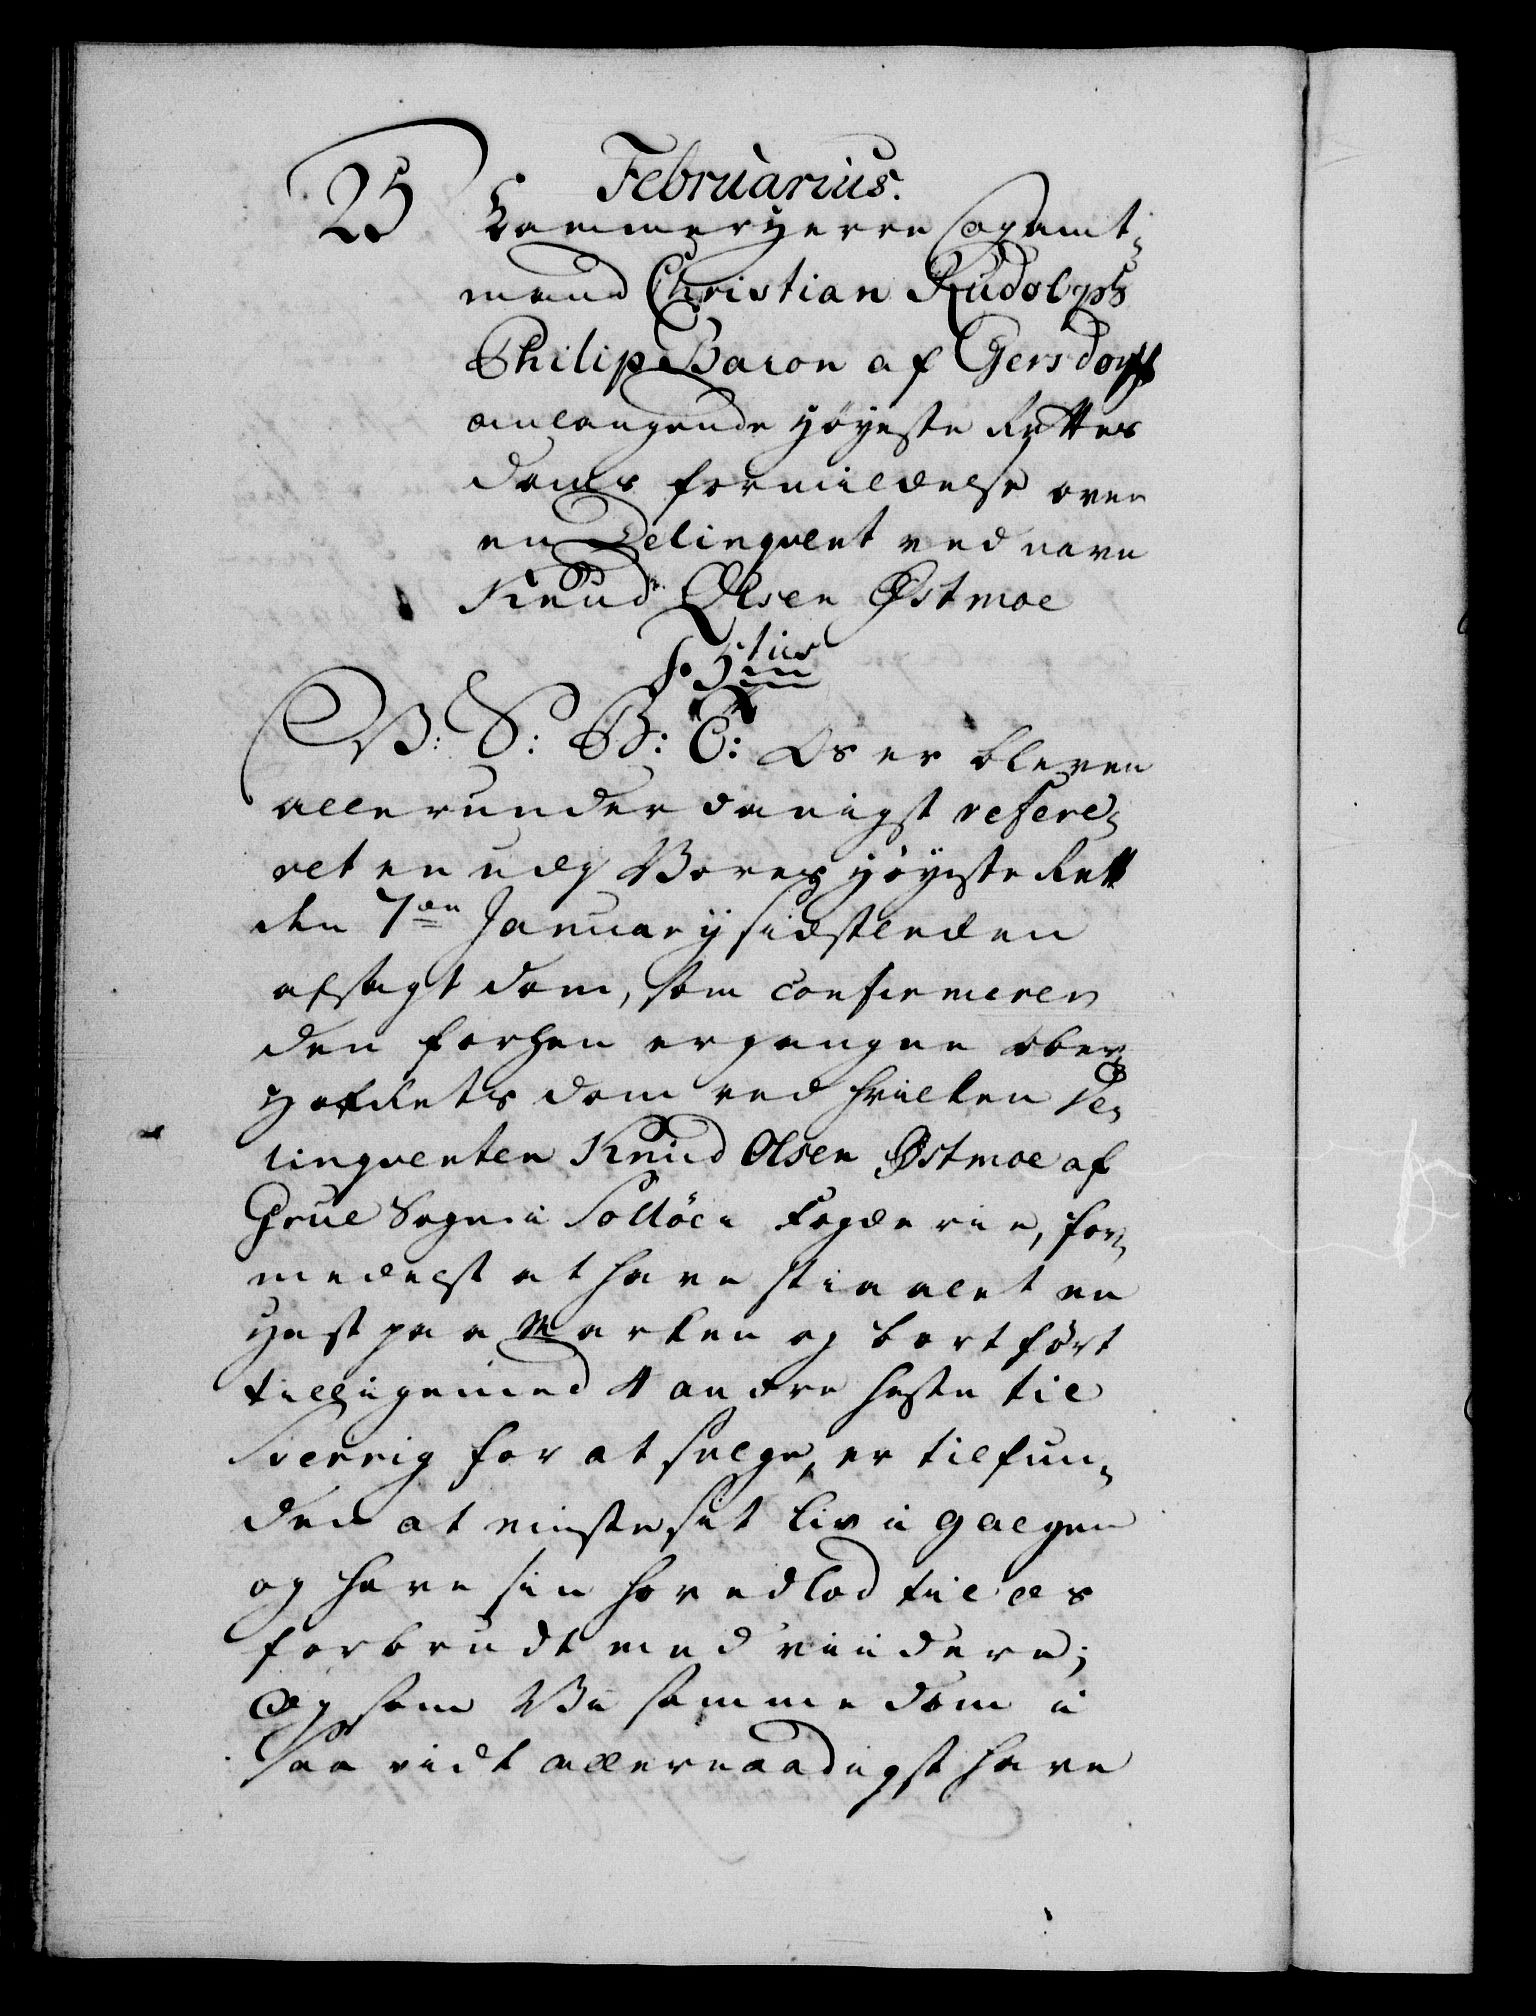 Februarius.
25 Kammerherre Copamt-
mand Christian Rudolph
Philip Baron af Gersdorff
anlangende Høyeste Rettes
doms formildelse over
en Delinqvent ved navn
Knud Olsen Østmoe
F. 5tus
V: S: B: T: Os er bleven
allerunderdanigst refere-
ret en udj Vores Høyeste Rett
den 7de January sidstleden
afsagt dom, som confirmerer
den forhen ergangne ober-
hofRets dom ved hvilken De-
linqventen Knud Olsen Østmoe af
Grue Sogn i Solløers Fogderie, for-
medelst at have stiaalet en
Hest paa Marken og bortført
tilligemed 4 andre Heste til
Sverrig for at selge, er tilfun-
den at miste sit Liv i galgen
og have sin hovedlod til os
forbrudt med viidere;
Og som Vii samme dom i
saa vidt allernaadigst have